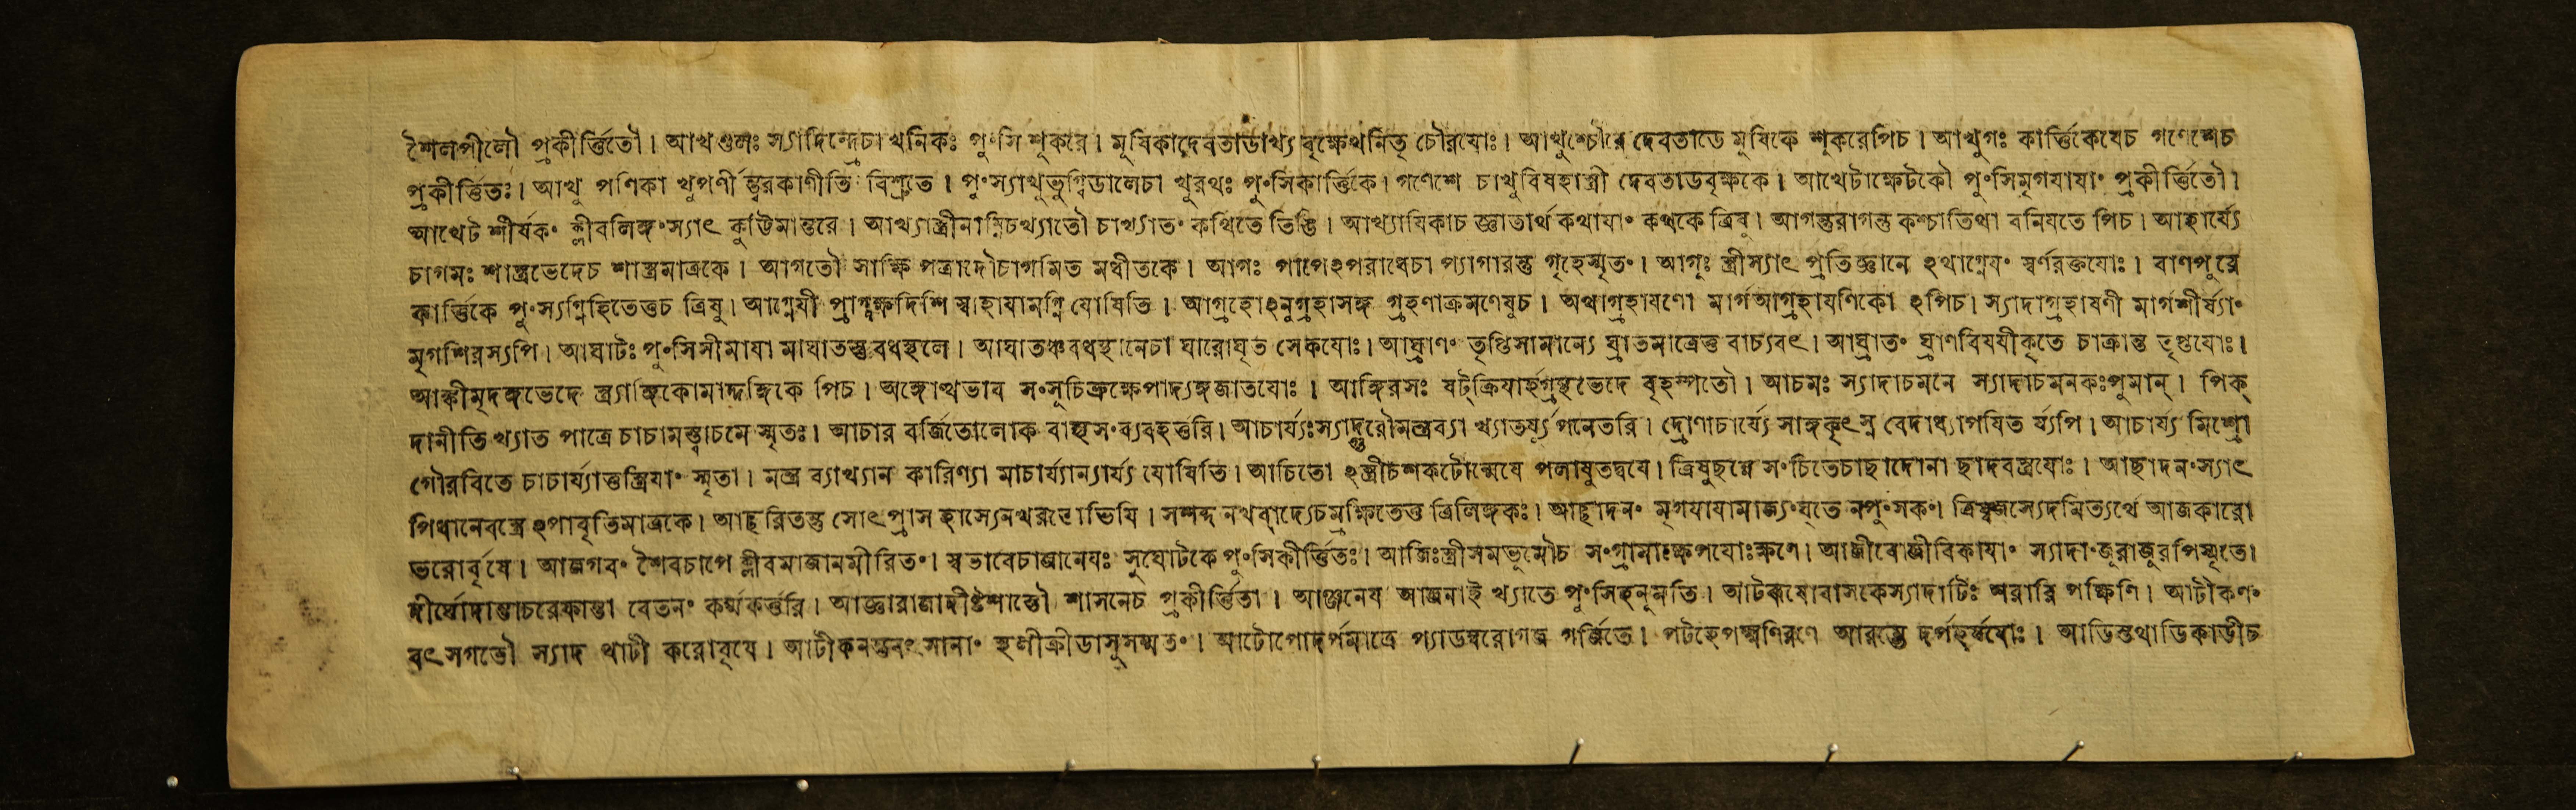 শৈলপীলৌ প্রকীর্ত্তিতৌ। আখণ্ডলঃ স্যাদিন্দ্রেচাখনিকঃ পুংসি শূকরে। মূষিকাদেবতাডাখ্য বৃক্ষেথনিতৃ চৌরযোঃ। আখুশ্চৌরে দেবতাডে মুষিকে শুকরেপিচ। আখুগঃ কার্ত্তিকেযেচ গণেশেচ
প্রকীর্ত্তিতঃ। আখু পর্ণিকা খুপর্ণী বিশ্রুতে। পুংস্যাখুভুগ্বিডালেচা খুরথঃ পুংসিকার্ত্তিকে। গণেশে চাখুবিষহাস্ত্রী দেবতাডবৃক্ষকে। আখেটাক্ষেটকৌ পুংসিমৃগযাযাং প্রকীর্ত্তিতৌ।
আখেট শীর্যকং ক্লীবলিঙ্গংস্যাৎ কুট্টিমান্তরে। আখ্যাস্ত্রীনাম্নিচখ্যাতৌ চাখ্যাতং কথিতে তিঙি। আখ্যাযিকাচ জ্ঞাতার্থ কথাযাং কথকে ত্রিষু। আগন্তুরাগন্তু কশ্চাতিথা বনিযতে পিচ। আহার্য্যে
চাগমঃ শাস্ত্রভেদেচ শাস্ত্রমাত্রকে। আগতৌ সাক্ষি পত্রাদৌচাগমিত মধীতকে। আগঃ পাপেঽপরাধেচা প্যাগারন্তু গৃহেস্মৃতং। আগূঃ স্ত্রীস্যাৎ প্রতিজ্ঞানে ঽথাগ্নেযং স্বর্ণরক্তযোঃ। বাণপুরে
কার্ত্তিকে পুংস্যগ্নিহিতেত্তচ ত্রিষু। আগ্নেযী প্রাগ্দক্ষদিশি স্বাহাযামগ্নি যোষিতি। আগ্রহোঽনুগ্রহাসঙ্গ গ্রহণাক্রমণেষুচ। অথাগ্রহাযণো মার্গআগ্রহাযণিকো ঽপিচ। স্যাদাগ্রহাষণী মার্গশীর্ষ্যাং
মৃগশিরস্যপি। আঘাটঃ পুংসিসীমাযা মাঘাতস্তুবধস্থলে। আঘাতঞ্চবধস্থানেচা ঘারোঘৃত সেকযোঃ। আঘ্রাণং তৃপ্তিসামান্যে ঘ্রাতমাত্রেত্ত বাচ্যবৎ। আঘ্রাতং ঘ্রাণবিষযীকৃতে চাক্রান্ত তৃপ্তযোঃ।
আঙ্কীমৃদঙ্গভেদে পিচ। অঙ্গোত্থভাব সংসূচিভ্রূক্ষেপাদ্যঙ্গজাতযোঃ। আঙ্গিরসঃ ষট্‌ক্রিযার্হগ্রন্থভেদে বৃহস্পতৌ। আচমঃ স্যাদাচমনে স্যাদাচমনকঃপুমান্। পিক্
দানীতি খ্যাত পাত্রে চাচামস্ত্বাচমে স্মৃতঃ। আচার বর্জিতোলোক বাহ্যসংব্যবহর্ত্তরি। আচার্য্যঃস্যাদ্গুরৌমন্ত্রব্যা খ্যাতর্য্যূর্গনেতরি। দ্রোণাচার্য্যে সাঙ্গকৃৎস্ন বেদাধ্যাপযিত র্য্যপি। আচার্য্য মিশ্রো
গৌরবিতে চাচার্য্যাত্তস্ত্রিযাং স্মৃতা। মন্ত্র ব্যাখ্যান কারিণ্যা মাচার্য্যান্যার্য্য যোষিতি। আচিতো ঽস্ত্রীচশকটোন্মেযে পলাযুতদ্বযে। ত্রিষুছন্নে সংচিতেচাছাদোনা ছাদবস্ত্রযোঃ। আছাদনংস্যাৎ
পিধানেবস্ত্রে ঽপাবৃতিমাত্রকে। আছুরিতন্তু সোৎপ্রাস হাস্যেনখরজোভিযি। সশব্দ নখবাদ্যেচম্রক্ষিতেত্ত ত্রিলিঙ্গকঃ। আছাদনং মৃগযাযামাজ্যংঘৃতে নপুংসকং। ত্রিষ্বজস্যেদমিত্যর্থে আজকারো
ভরোর্বৃষে। আজগবং শৈবচাপে ক্লীবমাজানমীরিতং। স্বভাবেচাজানেযঃ সুঘোটকে পুংসিকীর্ত্তিতঃ। আজিঃস্ত্রীসমভূমৌচ সংগ্রামাক্ষেপযোঃক্ষণে। আজীবোজীবিকাযাং স্যাদাংজূরাজুরপিস্মৃতে।
দীর্ঘোদান্তাচরেফান্তা বেতনং কর্ম্মকর্ত্তরি। আজ্ঞারাজাদীষ্টশাস্তৌ শাসনেচ প্রকীর্ত্তিতা। আঞ্জনেয আঞ্জনাই খ্যাতে পুংসিহনুমতি। আটরূষোবাসকেস্যাদাটিঃ শরারি পক্ষিণি। আটীকণং
বৎসগতৌ স্যাদ থাটী করোবৃষে। আটীকনন্তুবৎসানাং স্থলীক্রীডাসুসম্মতং। আটোপোদর্পমাত্রে প্যাডম্বরোগজ গর্জ্জিতে। পটহেপক্ষ্মণিরণে আরম্ভে দর্পহর্ষযোঃ। আডিস্তথাডিকাডীচ